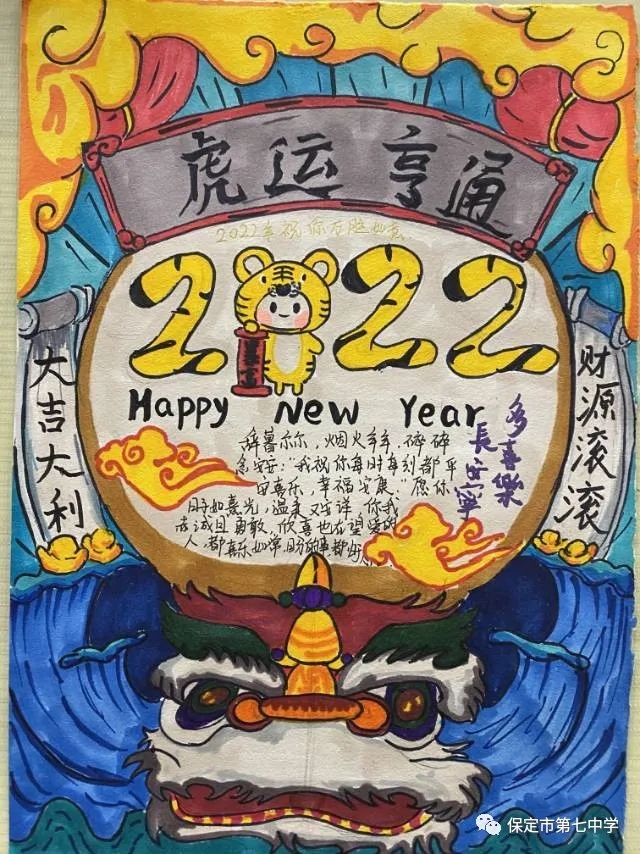 虎运亨通
2022年祝你万胜如意
2022
Happy New Year
大吉大利
财源滚滚
多喜樂
長安寧
辞暮尔尔，烟火年年，碎碎
念安安："我祝你每时每刻都平
安喜乐，幸福安康。"愿你
目如熹光，温柔又安详，你我
赤诚且勇敢，欣喜也在望
人，都喜乐如常
保定市第七中学